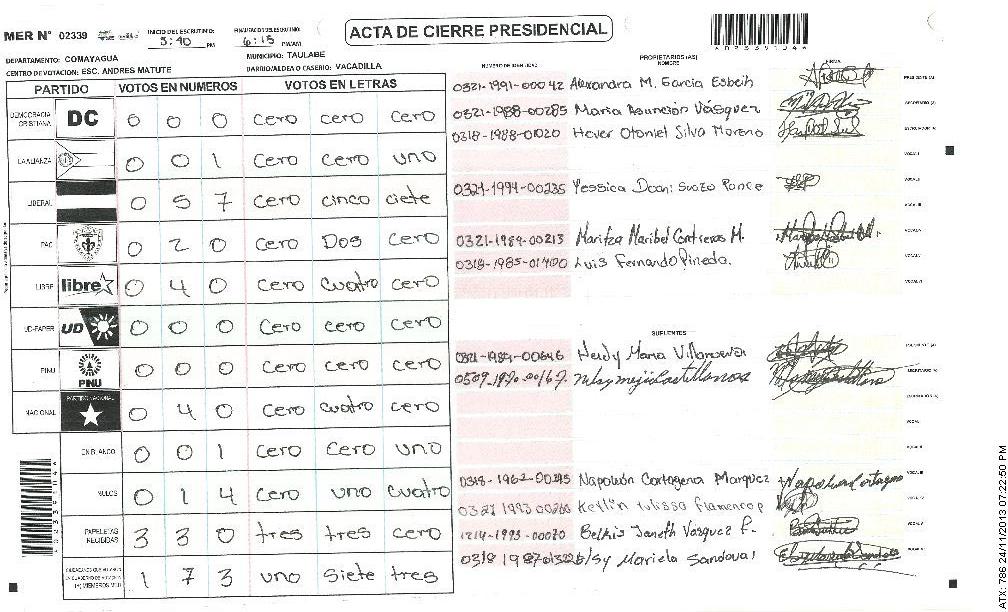 MER N° 02339
INICIO DEL ESCRUTINIO: 5:40 PM
FINALIZACION DEL ESCRUTINIO: 6:15 PM/AM
ACTA DE CIERRE PRESIDENCIAL
DEPARTAMENTO: COMAYAGUA
MUNICIPIO: TAULABE
CENTRO DE VOTACION: ESC. ANDRES MATUTE
BARRIO/ALDEA O CASERIO: VACADILLA
PARTIDO VOTOS EN NUMEROS VOTOS EN LETRAS
DEMOCRACIA CRISTIANA DC 0 0 0 cero cero cero
LA ALIANZA 0 0 1 cero cero uno
LIBERAL 0 5 7 cero cinco ciete
PAC 0 2 0 cero Dos cero
LIBRE libre 0 4 0 cero cuatro cero
UD-FAPER UD 0 0 0 cero cero cero
PINU PINU 0 0 0 cero cero cero
NACIONAL PARTIDO NACIONAL 0 4 0 cero cuatro cero
EN BLANCO 0 0 1 cero cero uno
NULOS 0 1 4 cero uno cuatro
PAPELETAS RECIBIDAS 3 3 0 tres tres cero
1 7 3 uno siete tres
NUMERO DE IDENTIDAD PROPIETARIOS (AS) NOMBRE FIRMA
0321-1991-00042 Alexandra M. Garcia Esbeih PRESIDENTE (A)
0321-1988-00285 Maria Asunción Vásquez SECRETARIO (A)
0318-1988-01020 Hever Otoniel Silva Moreno ESCRUTADOR (A)
VOCAL I
0321-1994-00235 Yessica Doani Suazo Ponce VOCAL II
VOCAL III
0321-1989-00213 Maritza Maribel Contreras M. VOCAL IV
0318-1985-01400 Luis Fernando Pineda. VOCAL V
VOCAL VI
SUPLENTES
0321-1984-00646 Heidy Maria Villanueva PRESIDENTE (A)
0509-1970-00167. Nelsy mejia Castillanos SECRETARIO (A)
ESCRUTADOR (A)
VOCAL I
VOCAL II
0318-1962-00295 Napoleón Cartagena Marquez VOCAL III
Ketlin Julissa Flamenco P VOCAL IV
1214-1993-00070 Belkis Janeth Vasquez P. VOCAL V
Elsy Mariela Sandoval VOCAL VI
ATX: 786 24/11/2013 07:22:50 PM